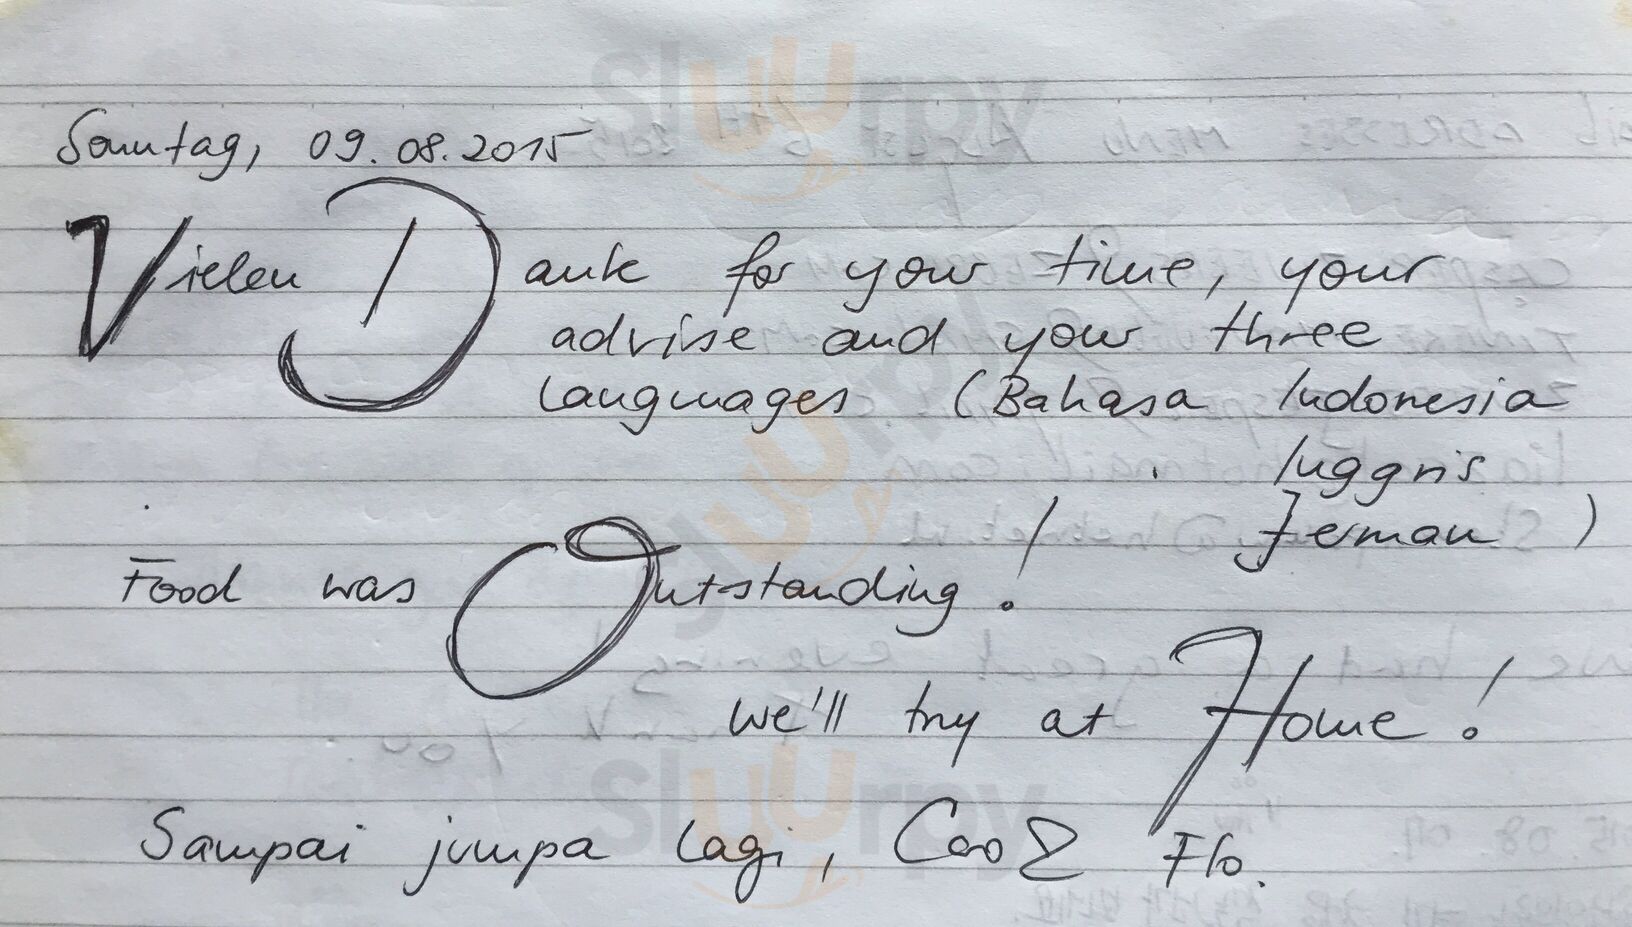 Sonntag, 09.08.2015
Vielen Dank for your time, your
advise and your three
languages (Bahasa Indonesia
Inggris
Jerman)
Food was Outstanding!
we'll try at Home!
Sampai jumpa lagi, Caro & Flo.